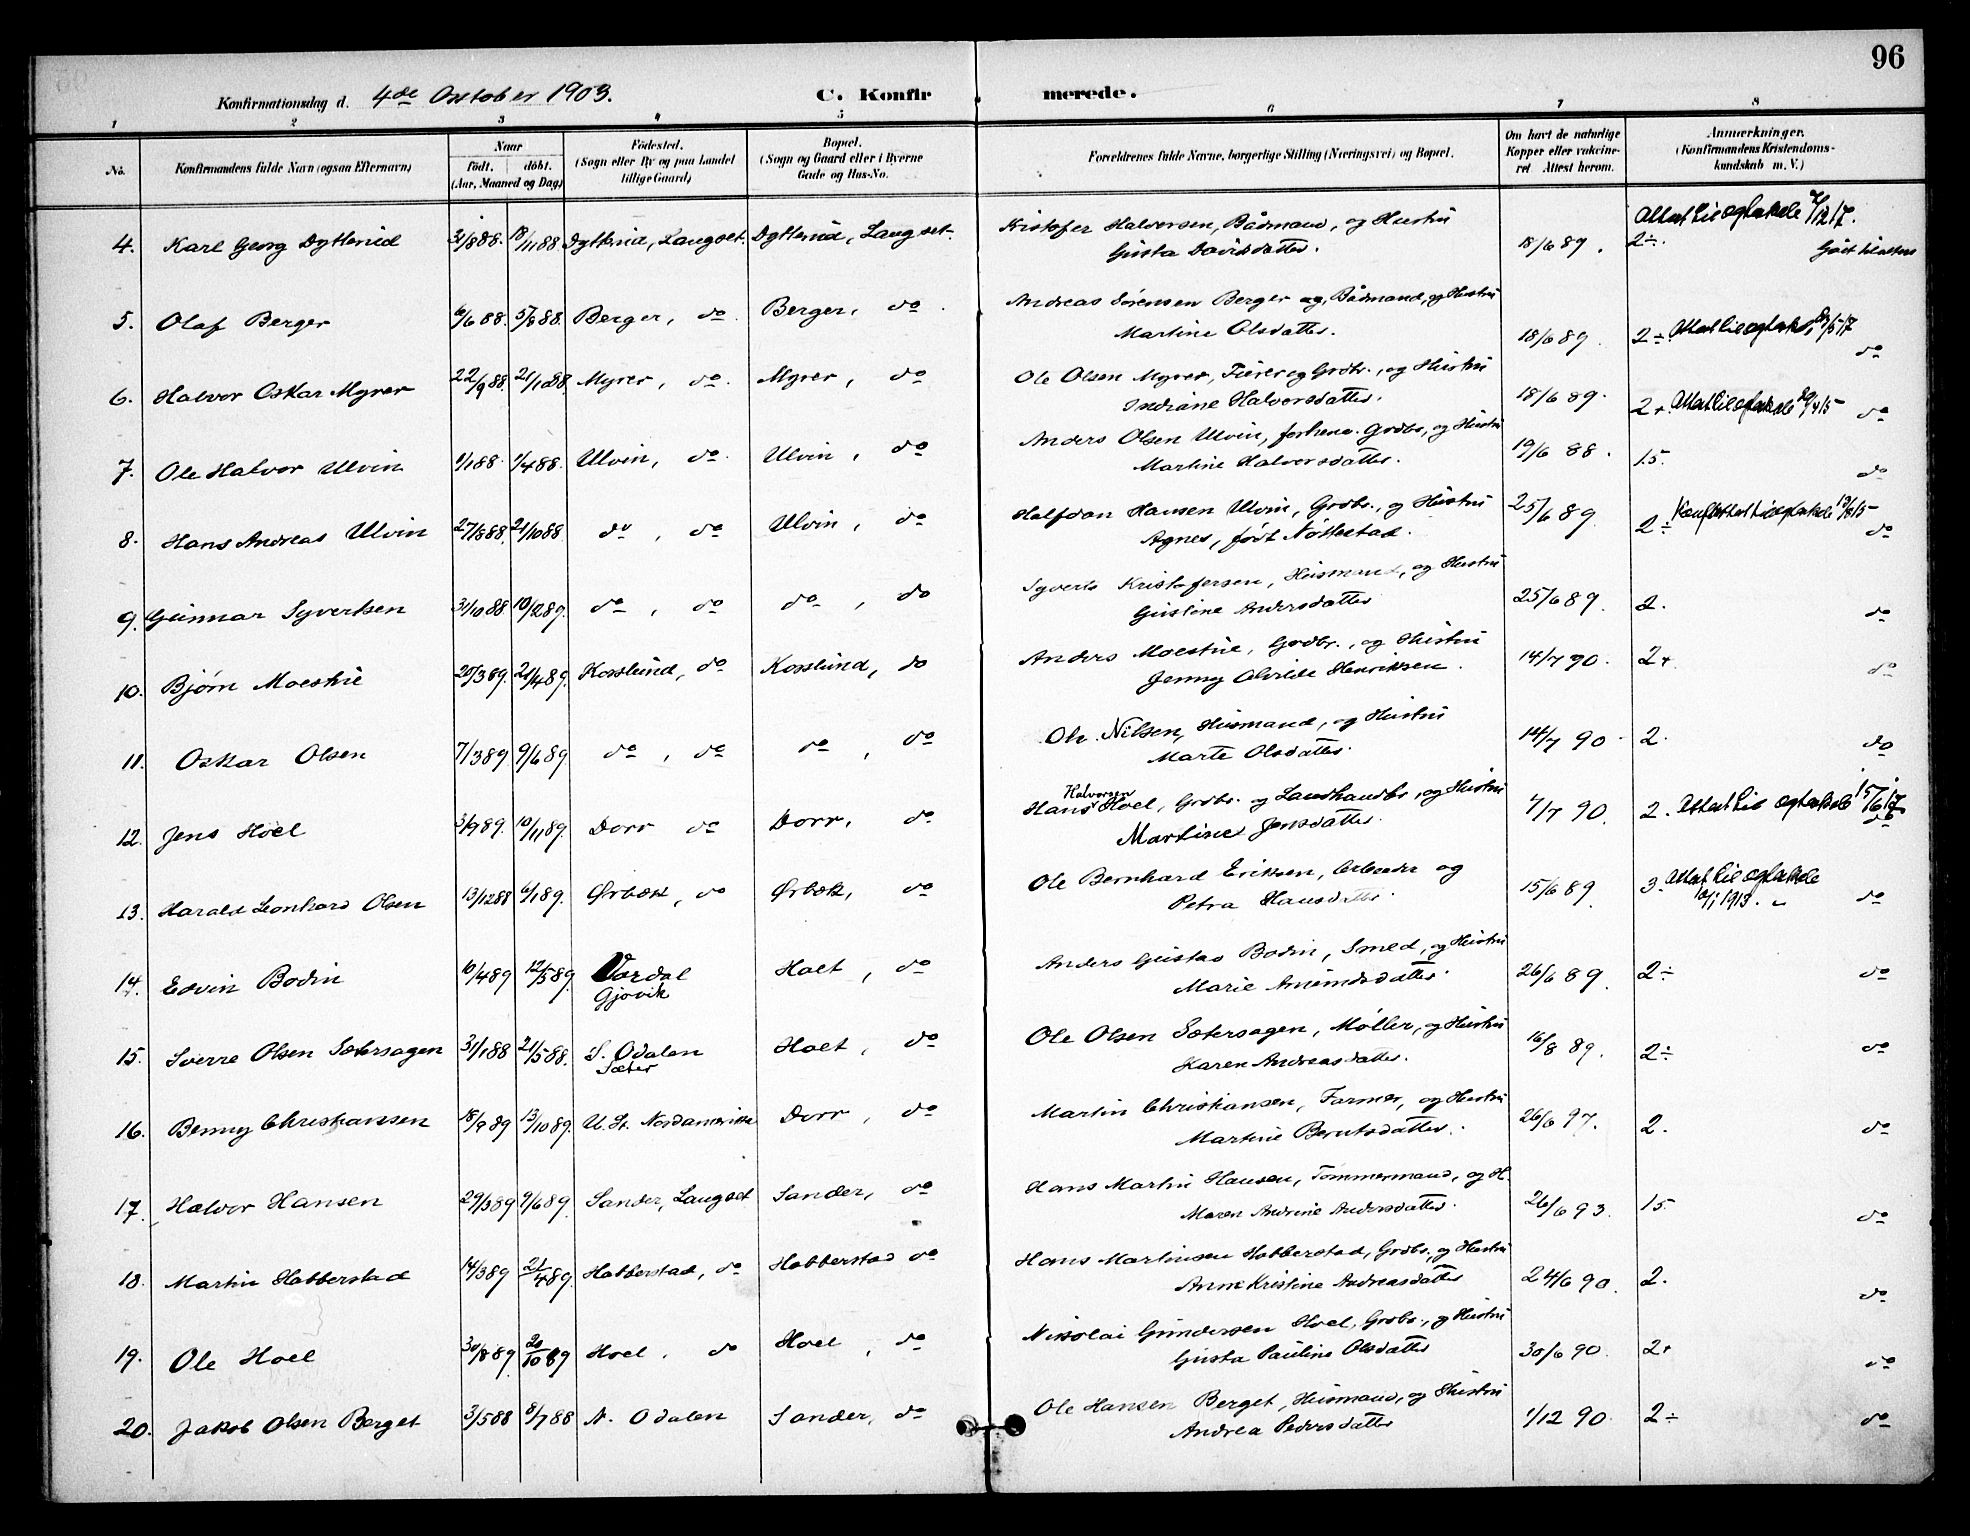 96
Konfirmationsdag d. 4de Oktober 1903. C. Konfir merede.
1 2 3 4 5 6 7 8
No. Konfirmandens fulde Navn (ogsaa Efternavn) Naar født. døbt. (Aar, Maaned og Dag) Fødested. (Sogn eller By og paa Landet tillige Gaard.) Bopæl. (Sogn og Gaard eller i Byerne Gade og Hus-No. Forældrenes fulde Navne, borgerlige Stilling (Næringsvei) og Bopæl. Om havt de naturlige Kopper eller vakcineret Attest herom. Anmærkninger. (Konfirmandens Kristendomskundskab m. V.)
4. Karl Georg Dytterud 31/8 88. 18/11 88. Dytterud, Langset. Dytterud, Langset. Kristofer Halvorsen, Baadmand, og Hustru
Gusta Davidsdatter. 18/6 89. 2÷.
5. Olaf Berger 6/6 88. 5/8 88. Berger, do. Berger, do. Andreas Sørensen Berger og, Baadmand, og Hustru
Martine Olsdatter. 18/6 89. 2÷ do
6. Halvor Oskar Myrer 22/9 88. 21/10 88. Myrer, do. Myrer, do Ole Olsen Myrer, og Grdbr., og Hustru
Indiane Halvorsdatter. 18/6 89. 2+. do
7. Ole Halvor Ulvin 1/1 88. 1/4 88. Ulvin, do. Ulvin, do Anders Olsen Ulvin, forhenv. Grdbr., og Hustru
Martine Halvorsdatter. 19/6 88. 1.5. do
8. Hans Andreas Ulvin 27/8 88. 21/10 88. do, do Ulvin, do Halfdan Hansen Ulvin, Grdbr., og Hustru
Agnes, født Nøkkestad. 25/6 89 2÷ do
9. Gunnar Syvertsen 31/10 88 10/2 89. do, do do, do Syvert Kristofersen, Husmand, og Hustru
Gustine Andersdatter 25/6 89. 2. do
10. Bjørn Moestue 20/3 89. 21/4 89. Kosslund, do Kosslund, do Anders Moestue, Grdbr., og Hustru
Jenny Alvilde Henriksen. 14/7 90. 2+. do
11. Oskar Olsen 7/3 89 9/6 89 do, do do, do Ole Nilsen, Husmand, og Hustru
Marte Olsdatter. 14/7 90 2. do
12. Jens Hoel 3/9 89. 10/11 89. Dorr do Dorr, do Hans Halvorsen Hoel, Grdbr. og Landhandlr., og Hustru
Martine Jensdatter. 7/7 90. 2. do
13. Harald Leonhard Olsen 13/12 88 6/1 89. Ørbæk, do Ørbæk, do Ole Bernhard Eriksen, Arbeider og
Petra Hansdatter 15/6 89. 3. 1913. do
14. Edvin Bodin 10/4 89 12/5 89. Vardal
Gjøvik Holt, do Anders Gustav Bodin, Smed, og Hustru
Marie Amundsdatter. 26/6 89. 2÷ do
15. Sverre Olsen Sætersagen 31/1 88 21/5 88. S. Odalen
Sæter Holt, do Ole Olsen Sætersagen, Møller, og Hustru
Karen Andreasdatter. 16/8 89. 2÷ do
16. Benny Christiansen 18/9 89 13/10 89. U. St. Nordamerika Dorr, do Martin Christiansen, Farmer, og Hustru
Martine Berntsdatter. 26/6 97. 2. do
17. Halvor Hansen 29/3 89 9/6 89. Sander, Langset Sander, do Hans Martin Hansen, Tømmermand, og H.
Maren Andrine Andersdatter. 26/6 93. 1.5. do
18. Martin Habberstad 14/3 89 21/4 89. Habberstad, do Habberstad do Hans Martinsen Habberstad, Grdbr., og Hustru
Anne Kristine Andreasdatter 24/6 90. 2. do
19. Ole Hoel 30/8 89. 20/10 89 Hoel, do Hoel, do Nikolai Gundersen Hoel, Grdbr., og Hustru
Gusta Pauline Olsdatter 30/6 90. 2+ do
20. Jakob Olsen Berget 3/5 88 8/7 88 N. Odalen Sander, do Ole Hansen Berget, Husmand, og Hustru
Andrea Pedersdatter 1/12 90. 2÷ do